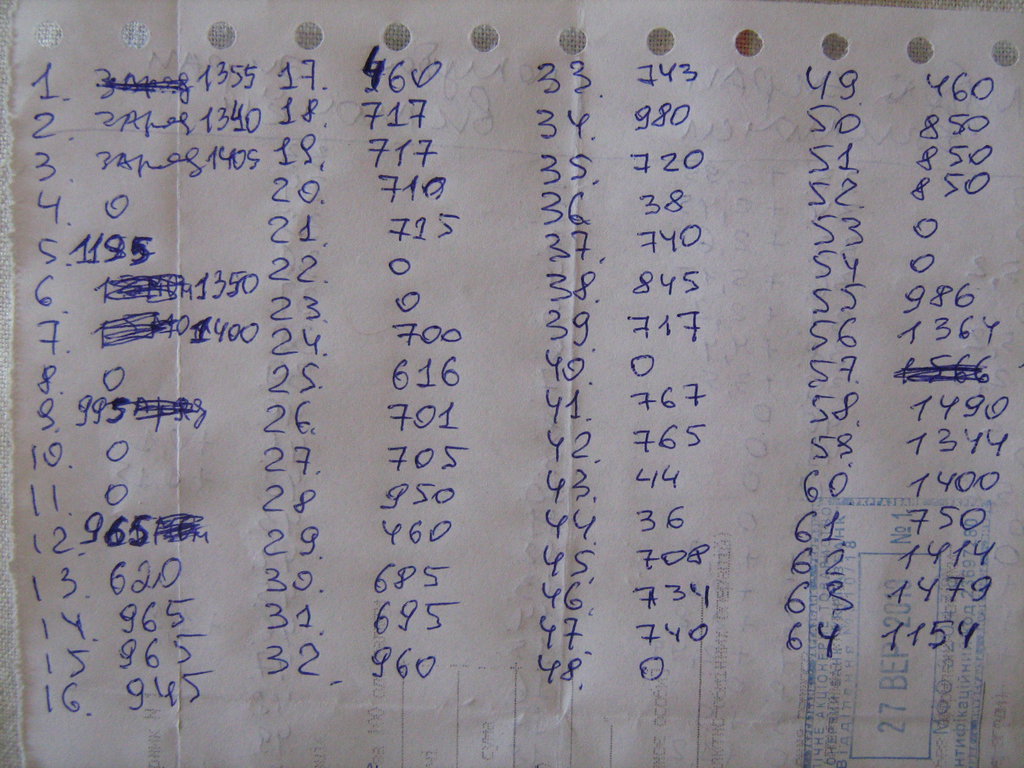 1. заряд 1355
2. заряд 1340
3. заряд 1405
4. 0
5. 1195
6. 1350
7. 1400
8. 0
9. 995
10. 0
11. 0
12. 965
13. 620
14. 965
15. 965
16. 945
17. 460
18. 717
19. 717
20. 710
21. 715
22. 0
23. 0
24. 700
25. 616
26. 701
27. 705
28 950
29. 460
30. 685
31. 695
32. 960
33. 743
34. 980
35. 720
36. 38
37. 740
38. 845
39. 717
40. 0
41. 767
42. 765
43. 44
44. 36
45. 708
46. 734
47. 740
48. 0
49 460
50 850
51 850
52. 850
53 0
54 0
55 986
56 1364
57. 1566
58. 1490
59. 1344
60 1400
61 750
62 1414
63 1479
64 1154
27 ВЕР 202
№1